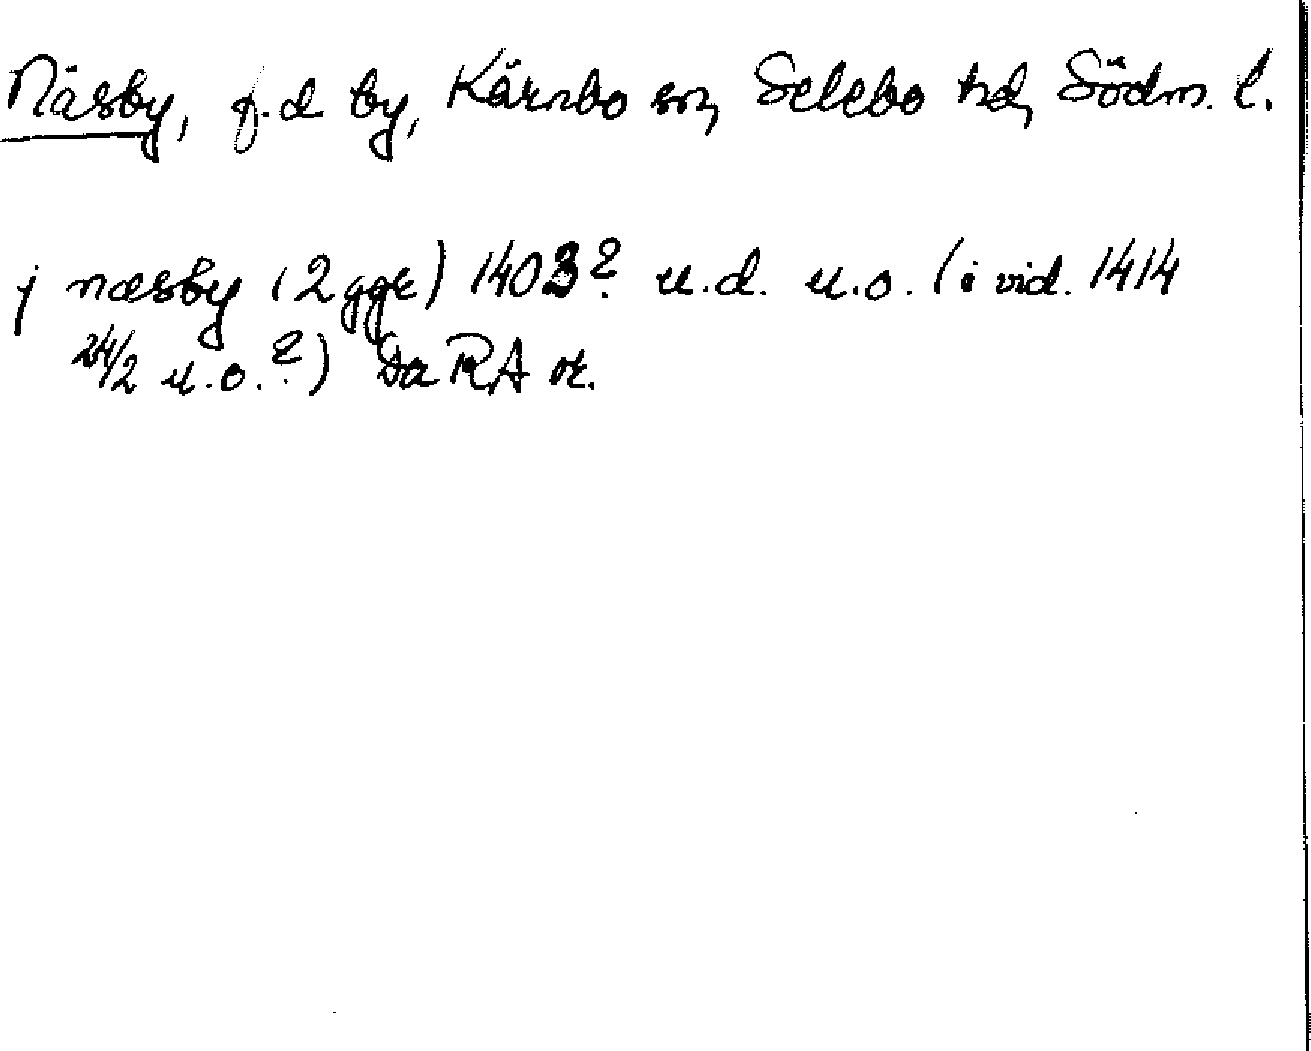 Näsby, f.d by, Kärnbo sn, Selebo hd, Södm. l.
j næsby (2 ggr) 1403? u.d. u.o. (i vid. 1414
24/2 u.o.?) Da RA or.